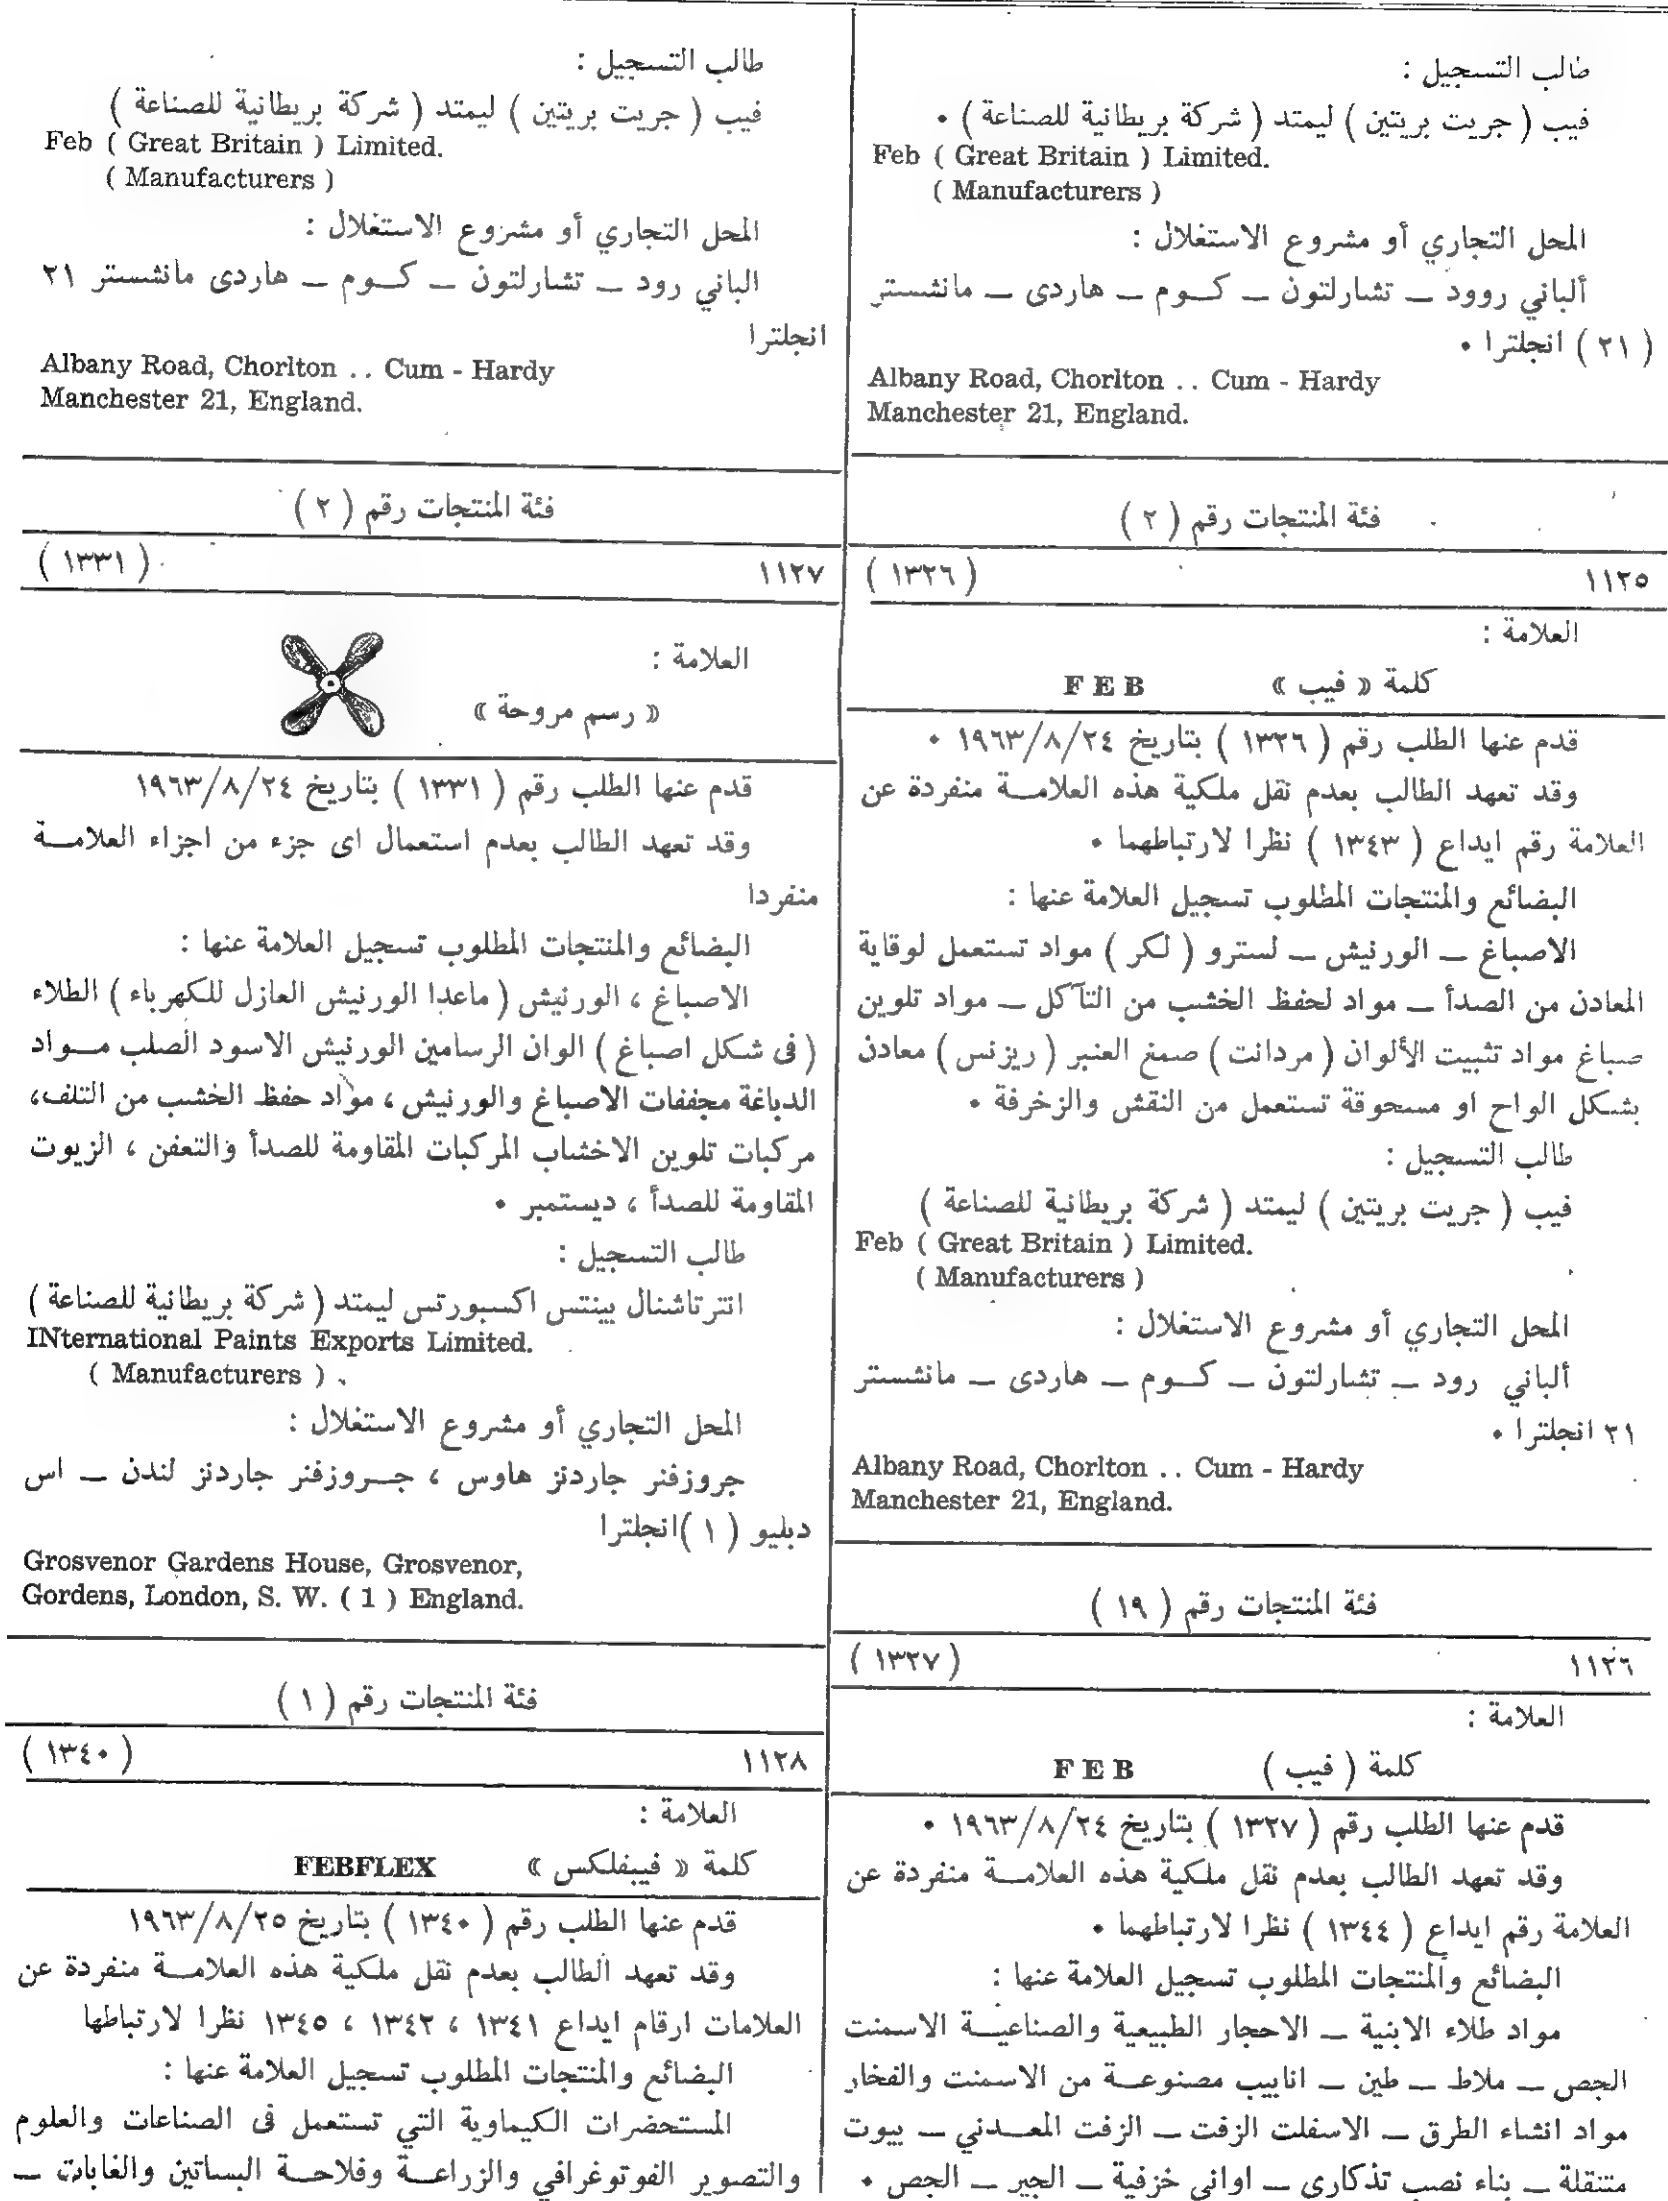 طالب التسجيل :
فيب ( جريت بريتين ) ليمتد ( شركة بريطانية للصناعة ) •
Feb ( Great Britain ) Limited.
( Manufacturers )
المحل التجاري أو مشروع الاستغلال :
ألباني روود ــ تشارلتون ــ كـــوم ــ هاردى ــ مانشستر
( ٢١ ) انجلترا •
Albany Road, Chorlton .. Cum - Hardy
Manchester 21, England.
فئة المنتجات رقم ( ٢ )
١١٢٥ ( ١٣٢٦ )
العلامة :
كلمة « فيب » FEB
قدم عنها الطلب رقم ( ١٣٢٦ ) بتاريخ ١٩٦٣/٨/٢٤ •
وقد تعهد الطالب بعدم نقل ملكية هذه العلامـــة منفردة عن
العلامة رقم ايداع ( ١٣٤٣ ) نظرا لارتباطهما •
البضائع والمنتجات المطلوب تسجيل العلامة عنها :
الاصباغ ــ الورنيش ــ لسترو ( لكر ) مواد تستعمل لوقاية
المعادن من الصدأ ــ مواد لحفظ الخشب من التآكل ــ مواد تلوين
صباغ مواد تثبيت الألوان ( مردانت ) صمغ العنبر ( ريزنس ) معادن
بشكل الواح او مسحوقة تستعمل من النقش والزخرفة •
طالب التسجيل :
فيب ( جريت بريتين ) ليمتد ( شركة بريطانية للصناعة )
Feb ( Great Britain ) Limited.
( Manufacturers )
المحل التجاري أو مشروع الاستغلال :
ألباني رود ــ تشارلتون ــ كـــوم ــ هاردى ــ مانشستر
٢١ انجلترا •
Albany Road, Chorlton .. Cum - Hardy
Manchester 21, England.
فئة المنتجات رقم ( ١٩ )
١١٢٦ ( ١٣٢٧ )
العلامة :
كلمة ( فيب ) FEB
قدم عنها الطلب رقم ( ١٣٢٧ ) بتاريخ ١٩٦٣/٨/٢٤ •
وقد تعهد الطالب بعدم نقل ملكية هذه العلامـــة منفردة عن
العلامة رقم ايداع ( ١٣٤٤ ) نظرا لارتباطهما •
البضائع والمنتجات المطلوب تسجيل العلامة عنها :
مواد طلاء الابنية ــ الاحجار الطبيعية والصناعيـــة الاسمنت
الجص ــ ملاط ــ طين ــ انابيب مصنوعـــة من الاسمنت والفخار
مواد انشاء الطرق ــ الاسفلت الزفت ــ الزفت المعـــدني ــ بيوت
متنقلة ــ بناء نصب تذكارى ــ اوانى خزفية ــ الجير ــ الجص •
طالب التسجيل :
فيب ( جريت بريتين ) ليمتد ( شركة بريطانية للصناعة )
Feb ( Great Britain ) Limited.
( Manufacturers )
المحل التجاري أو مشروع الاستغلال :
الباني رود ــ تشارلتون ــ كـــوم ــ هاردى مانشستر ٢١
انجلترا
Albany Road, Chorlton .. Cum - Hardy
Manchester 21, England.
فئة المنتجات رقم ( ٢ )
١١٢٧ ( ١٣٣١ )
العلامة :
« رسم مروحة »
قدم عنها الطلب رقم ( ١٣٣١ ) بتاريخ ١٩٦٣/٨/٢٤
وقد تعهد الطالب بعدم استعمال اى جزء من اجزاء العلامـــة
منفردا
البضائع والمنتجات المطلوب تسجيل العلامة عنها :
الاصباغ ، الورنيش ( ماعدا الورنيش العازل للكهرباء ) الطلاء
( فى شكل اصباغ ) الوان الرسامين الورنيش الاسود الصلب مـــواد
الدباغة مجففات الاصباغ والورنيش ، مواد حفظ الخشب من التلف،
مركبات تلوين الاخشاب المركبات المقاومة للصدأ والتعفن ، الزيوت
المقاومة للصدأ ، ديستمبر •
طالب التسجيل :
انترتاشنال بينتس اكسبورتس ليمتد ( شركة بريطانية للصناعة )
INternational Paints Exports Limited.
( Manufacturers )
المحل التجاري أو مشروع الاستغلال :
جروزفنر جاردنز هاوس ، جـــروزفنر جاردنز لندن ــ اس
دبليو ( ١ )انجلترا
Grosvenor Gardens House, Grosvenor,
Gordens, London, S. W. ( 1 ) England.
فئة المنتجات رقم ( ١ )
١١٢٨ ( ١٣٤٠ )
العلامة :
كلمة « فيبفلكس » FEBFLEX
قدم عنها الطلب رقم ( ١٣٤٠ ) بتاريخ ١٩٦٣/٨/٢٥
وقد تعهد الطالب بعدم نقل ملكية هذه العلامـــة منفردة عن
العلامات ارقام ايداع ١٣٤١ ، ١٣٤٢ ، ١٣٤٥ نظرا لارتباطها
البضائع والمنتجات المطلوب تسجيل العلامة عنها :
المستحضرات الكيماوية التي تستعمل فى الصناعات والعلوم
والتصوير الفوتوغرافي والزراعـــة وفلاحـــة البساتين والغابات ــ